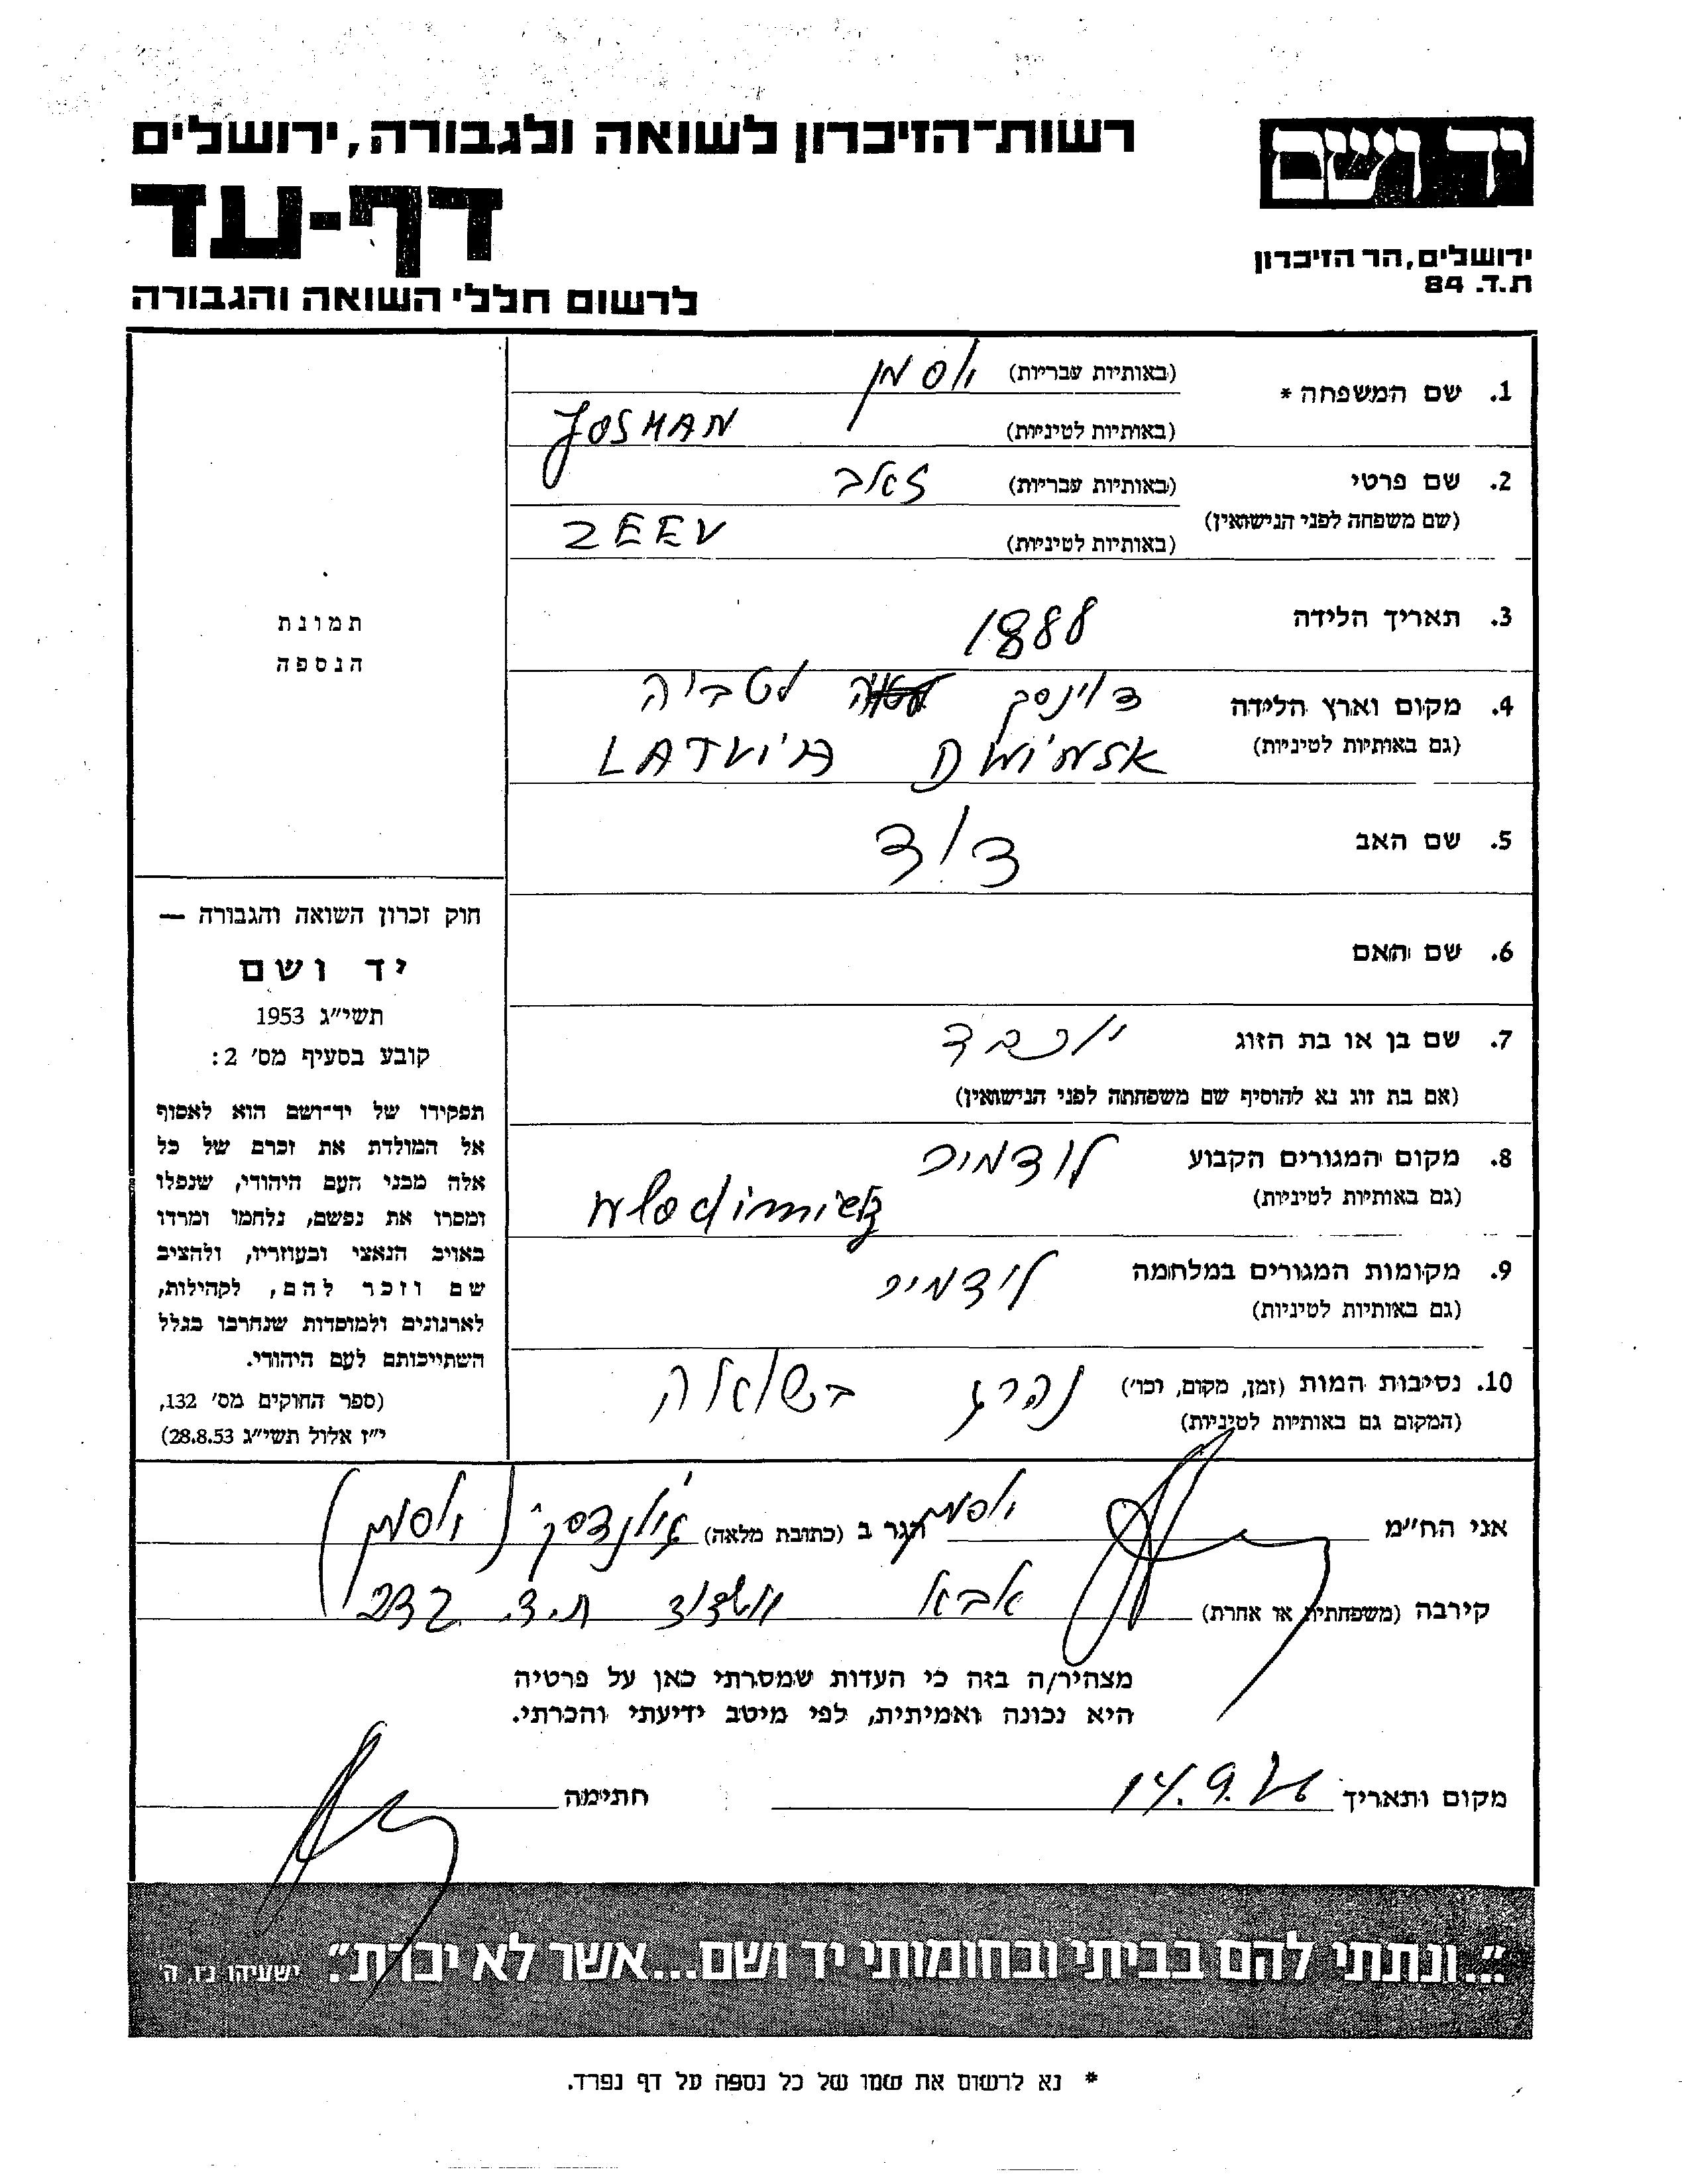 רשות־הזיכרון לשואה ולגבורה, ירושלים
יד ושם
דף-עד
ירושלים, הר הזיכרון
ת.ד. 84
לרשום חללי השואה והגבורה
1. שם המשפחה * (באותיות עבריות) יוסמן
(באותיות לטיניות) JOSMAN
2. שם פרטי (באותיות עבריות) זאב
(שם משפחה לפני הנישואין) (באותיות לטיניות) ZEEV
3. תאריך הלידה 1888
4. מקום וארץ הלידה דוינסק לטביה
(גם באותיות לטיניות) DWINSK LATVIA
5. שם האב דוד
6. שם האם
7. שם בן או בת הזוג יוכבד
(אם בת זוג נא להוסיף שם משפחתה לפני הנישואין)
8. מקום המגורים הקבוע לודמיר
(גם באותיות לטיניות)
9. מקומות המגורים במלחמה לודמיר
(גם באותיות לטיניות)
10. נסיבות המות (זמן, מקום, וכו') נהרג בשואה
(המקום גם באותיות לטיניות)
תמונת
הנספה
חוק זכרון השואה והגבורה —
יד ושם
תשי"ג 1953
קובע בסעיף מס' 2:
תפקידו של יד־ושם הוא לאסוף
אל המולדת את זכרם של כל
אלה מבני העם היהודי, שנפלו
ומסרו את נפשם, נלחמו ומרדו
באויב הנאצי ובעוזריו, ולהציב
שם וזכר להם, לקהילות,
לארגונים ולמוסדות שנחרבו בגלל
השתייכותם לעם היהודי.
(ספר החוקים מס' 132,
י"ז אלול תשי"ג 28.8.53)
אני הח"מ יוסמן הגר ב (כתובת מלאה) (יוסמן)
קירבה (משפחתית או אחרת) אבא אשדוד ת.ד.
מצהיר/ה בזה כי העדות שמסרתי כאן על פרטיה
היא נכונה ואמיתית, לפי מיטב ידיעתי והכרתי.
מקום ותאריך 14.9. חתימה
"...ונתתי להם בביתי ובחומותי יד ושם...אשר לא יכרת". ישעיהו נ"ו, ה'
* נא לרשום את שמו של כל נספה על דף נפרד.